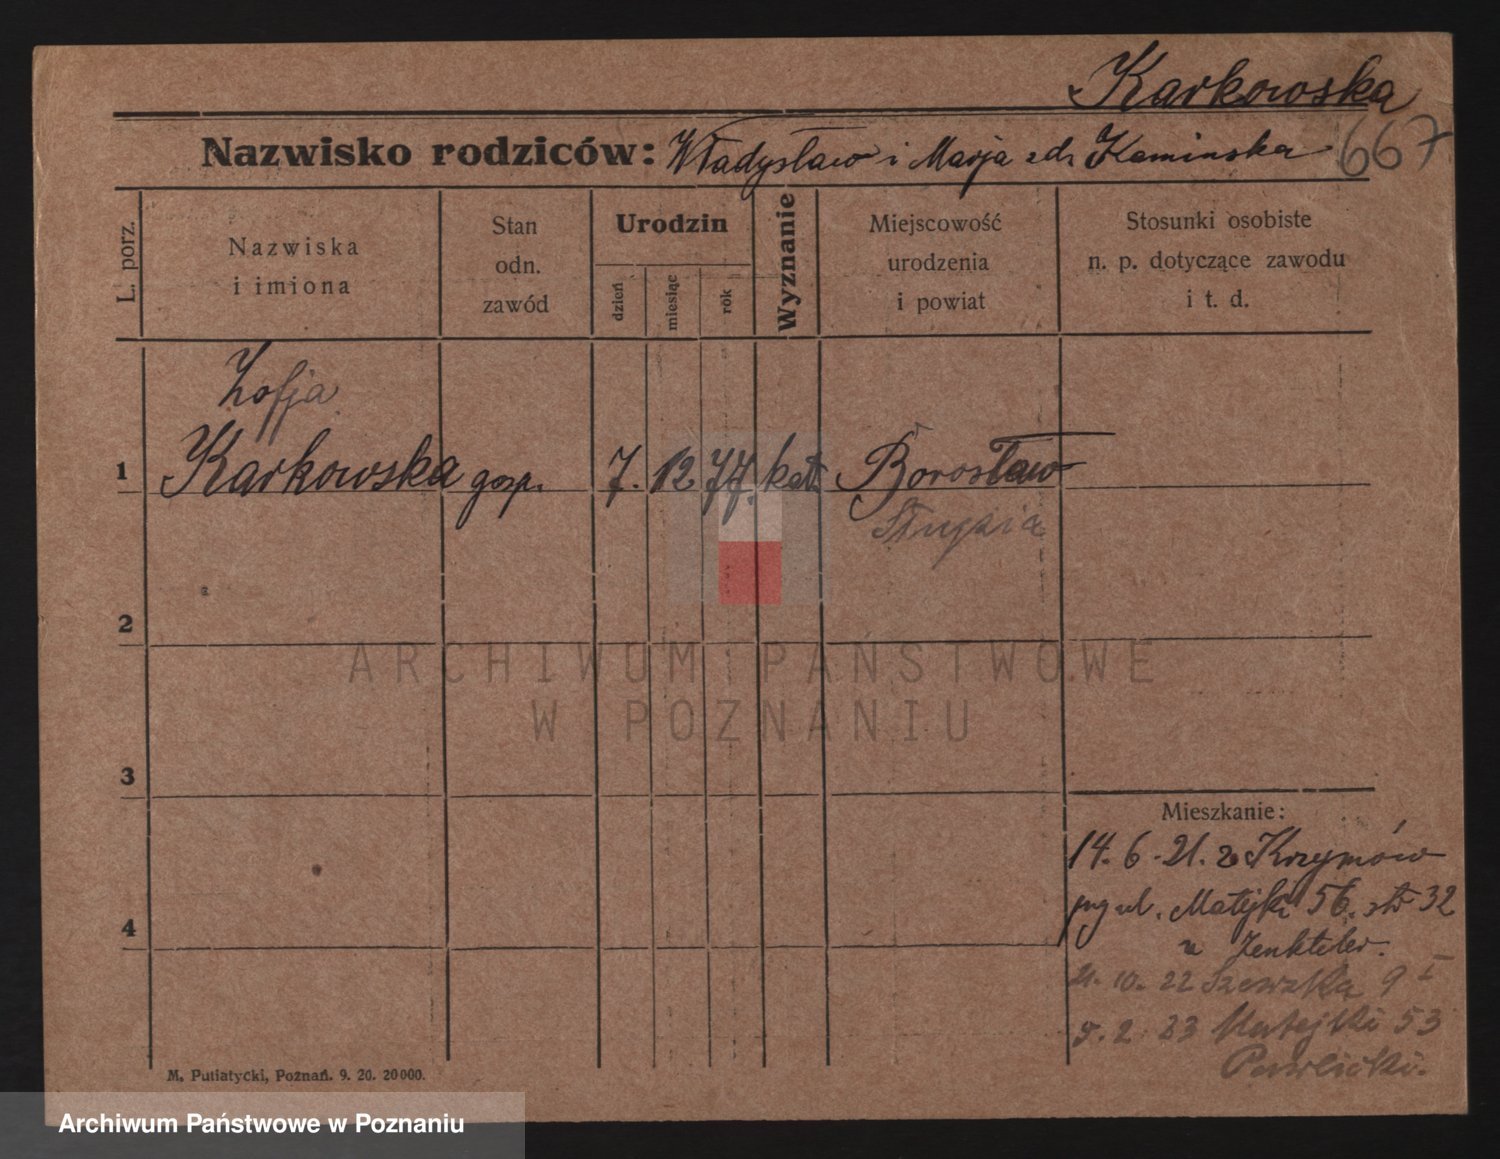 Karkowska
Nazwisko rodziców: Władysław i Marja zd. Kaminska 667
L. porz.
Nazwiska
i imiona
Stan
odn.
zawód
Urodzin
dzień
miesiąc
rok
Wyznanie
Miejscowość
urodzenia
i powiat
Stosunki osobiste
n. p. dotyczące zawodu
i t. d.
Zofja
1 Karkowska gosp. 7. 12 77. kat. Borosław
2
ARCHIWUM PAŃSTWOWE
W POZNANIU
3
Mieszkanie:
14. 6. 21. z Krzymów
ul. Matejki 56. 32
u Zenkteler.
10. 22 Szewzka 9 I
2. 23 Matejki 53
Pawlicki.
4
M. Putiatycki, Poznań. 9. 20. 20000.
Archiwum Państwowe w Poznaniu